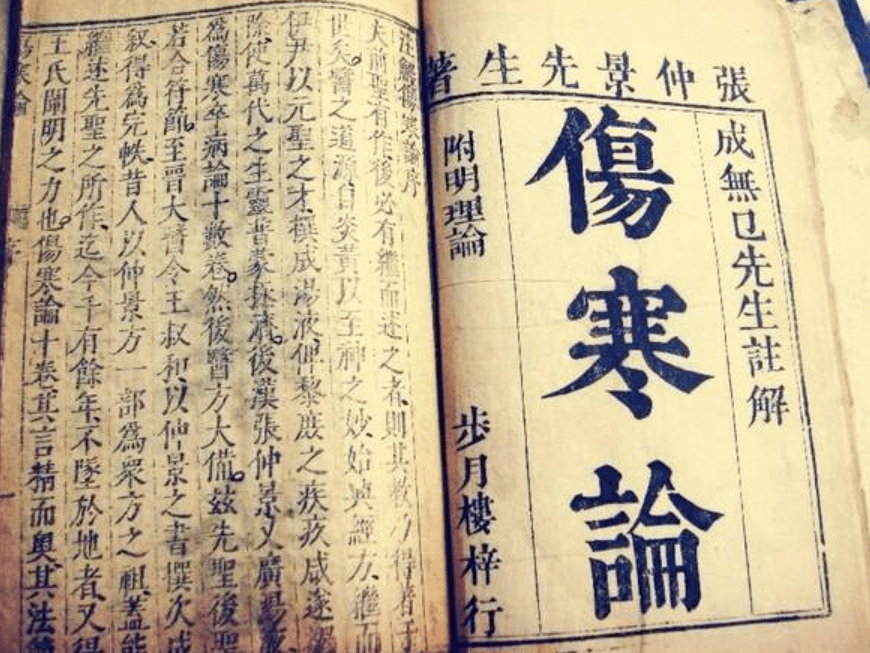 張仲景先生著
成無已先生註解
傷寒論
附明理論
步月樓梓行
注解傷寒論序
夫前聖有作後必有繼而述之者則其教乃得著于
世矣。醫之道源自炎黃以至神之妙始興經方繼而
伊尹以元聖之才撰成湯液俾黎庶之疾疢咸遂蠲
除使萬代之生靈普蒙拯濟。後漢張仲景又廣湯液
為傷寒卒病論十數卷。然後醫方大備。茲先聖後聖
若合符節。至晉大醫令王叔和以仲景之書撰次成
敘得為完帙。昔人以仲景方一部為衆方之祖。蓋能
繼述先聖之所作。迄今千有餘年不墜於地者又得
王氏闡明之力也。傷寒論十卷其言精而奧其法簡
傷寒論 序